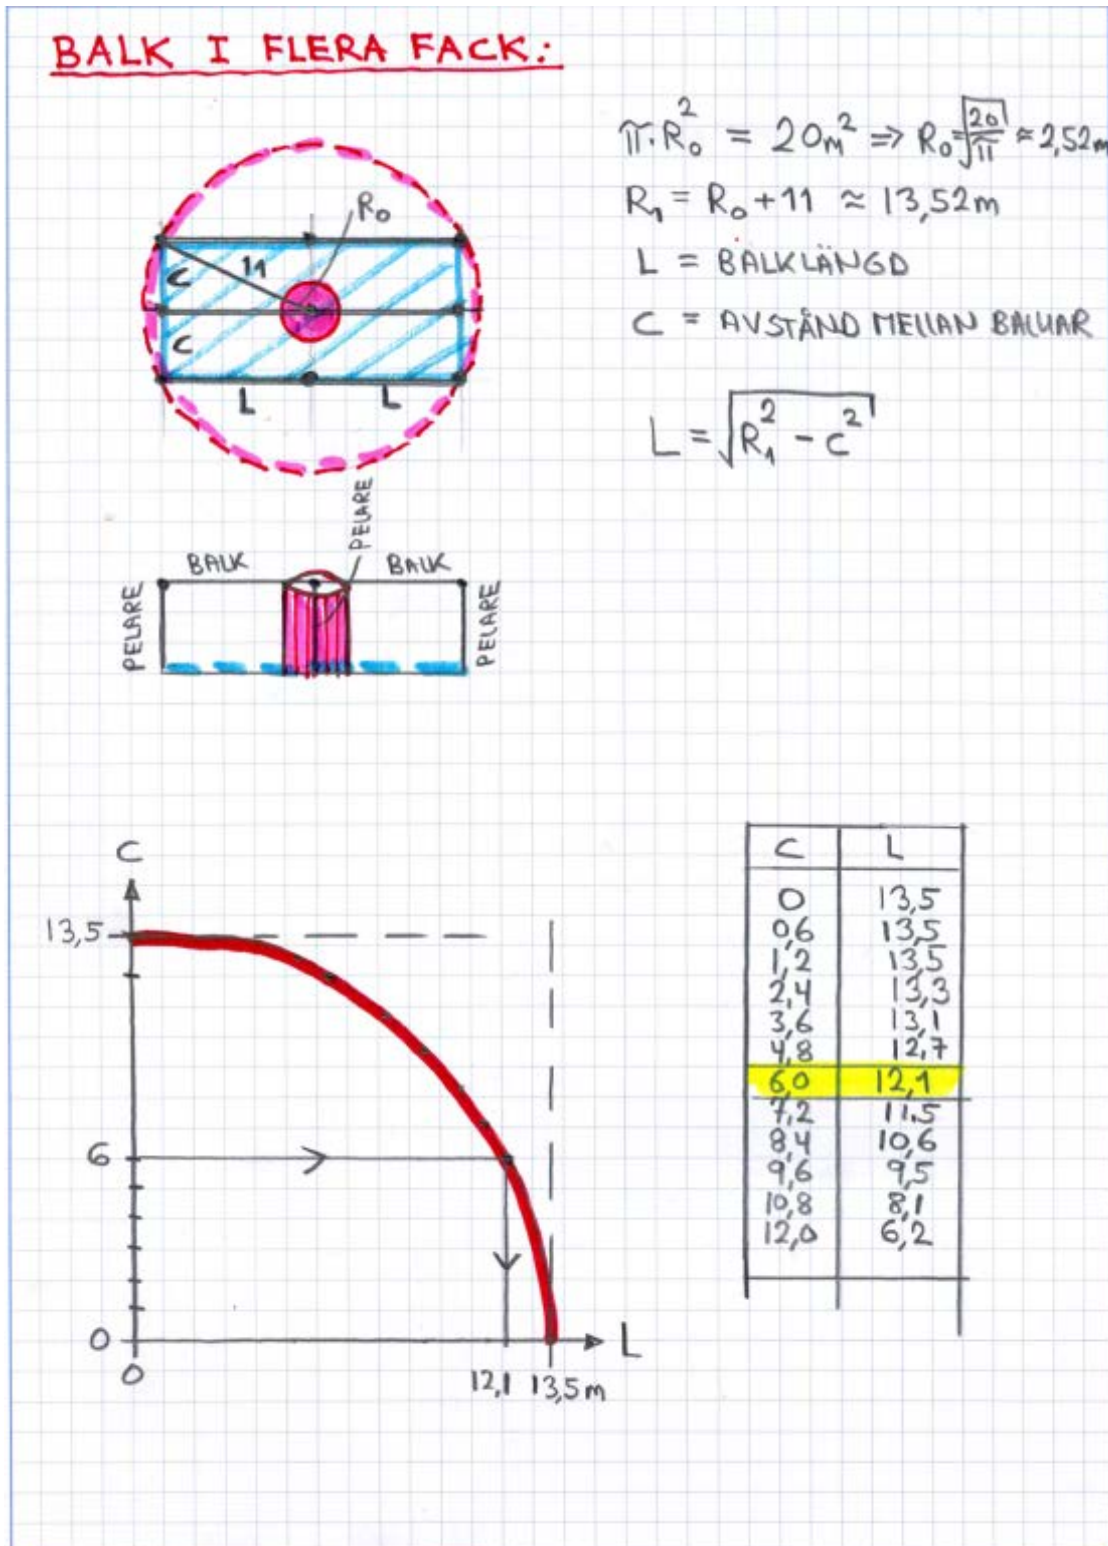 BALK I FLERA FACK:
π·R₀² = 20m² ⇒ R₀=√(20/π) ≈ 2,52m
R₁ = R₀+11 ≈ 13,52m
L = BALKLÄNGD
C = AVSTÅND MELLAN BALKAR
L = √(R₁² - c²)
R₀
C
11
C
L L
PELARE
BALK BALK
PELARE
PELARE
C
13,5
6
0
0
12,1 13,5m
L
C L
0 13,5
0,6 13,5
1,2 13,5
2,4 13,3
3,6 13,1
4,8 12,7
6,0 12,1
7,2 11.5
8,4 10,6
9,6 9,5
10,8 8,1
12,0 6,2